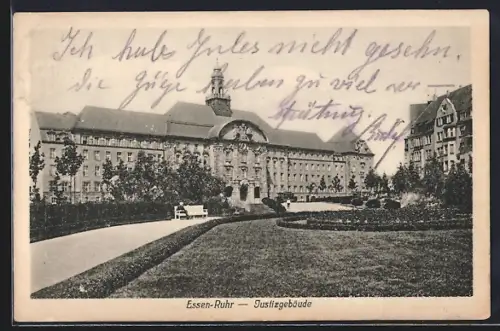 Ich habe Jules nicht gesehn.
die Züge haben zu viel ver
spätung
Essen-Ruhr — Justizgebäude